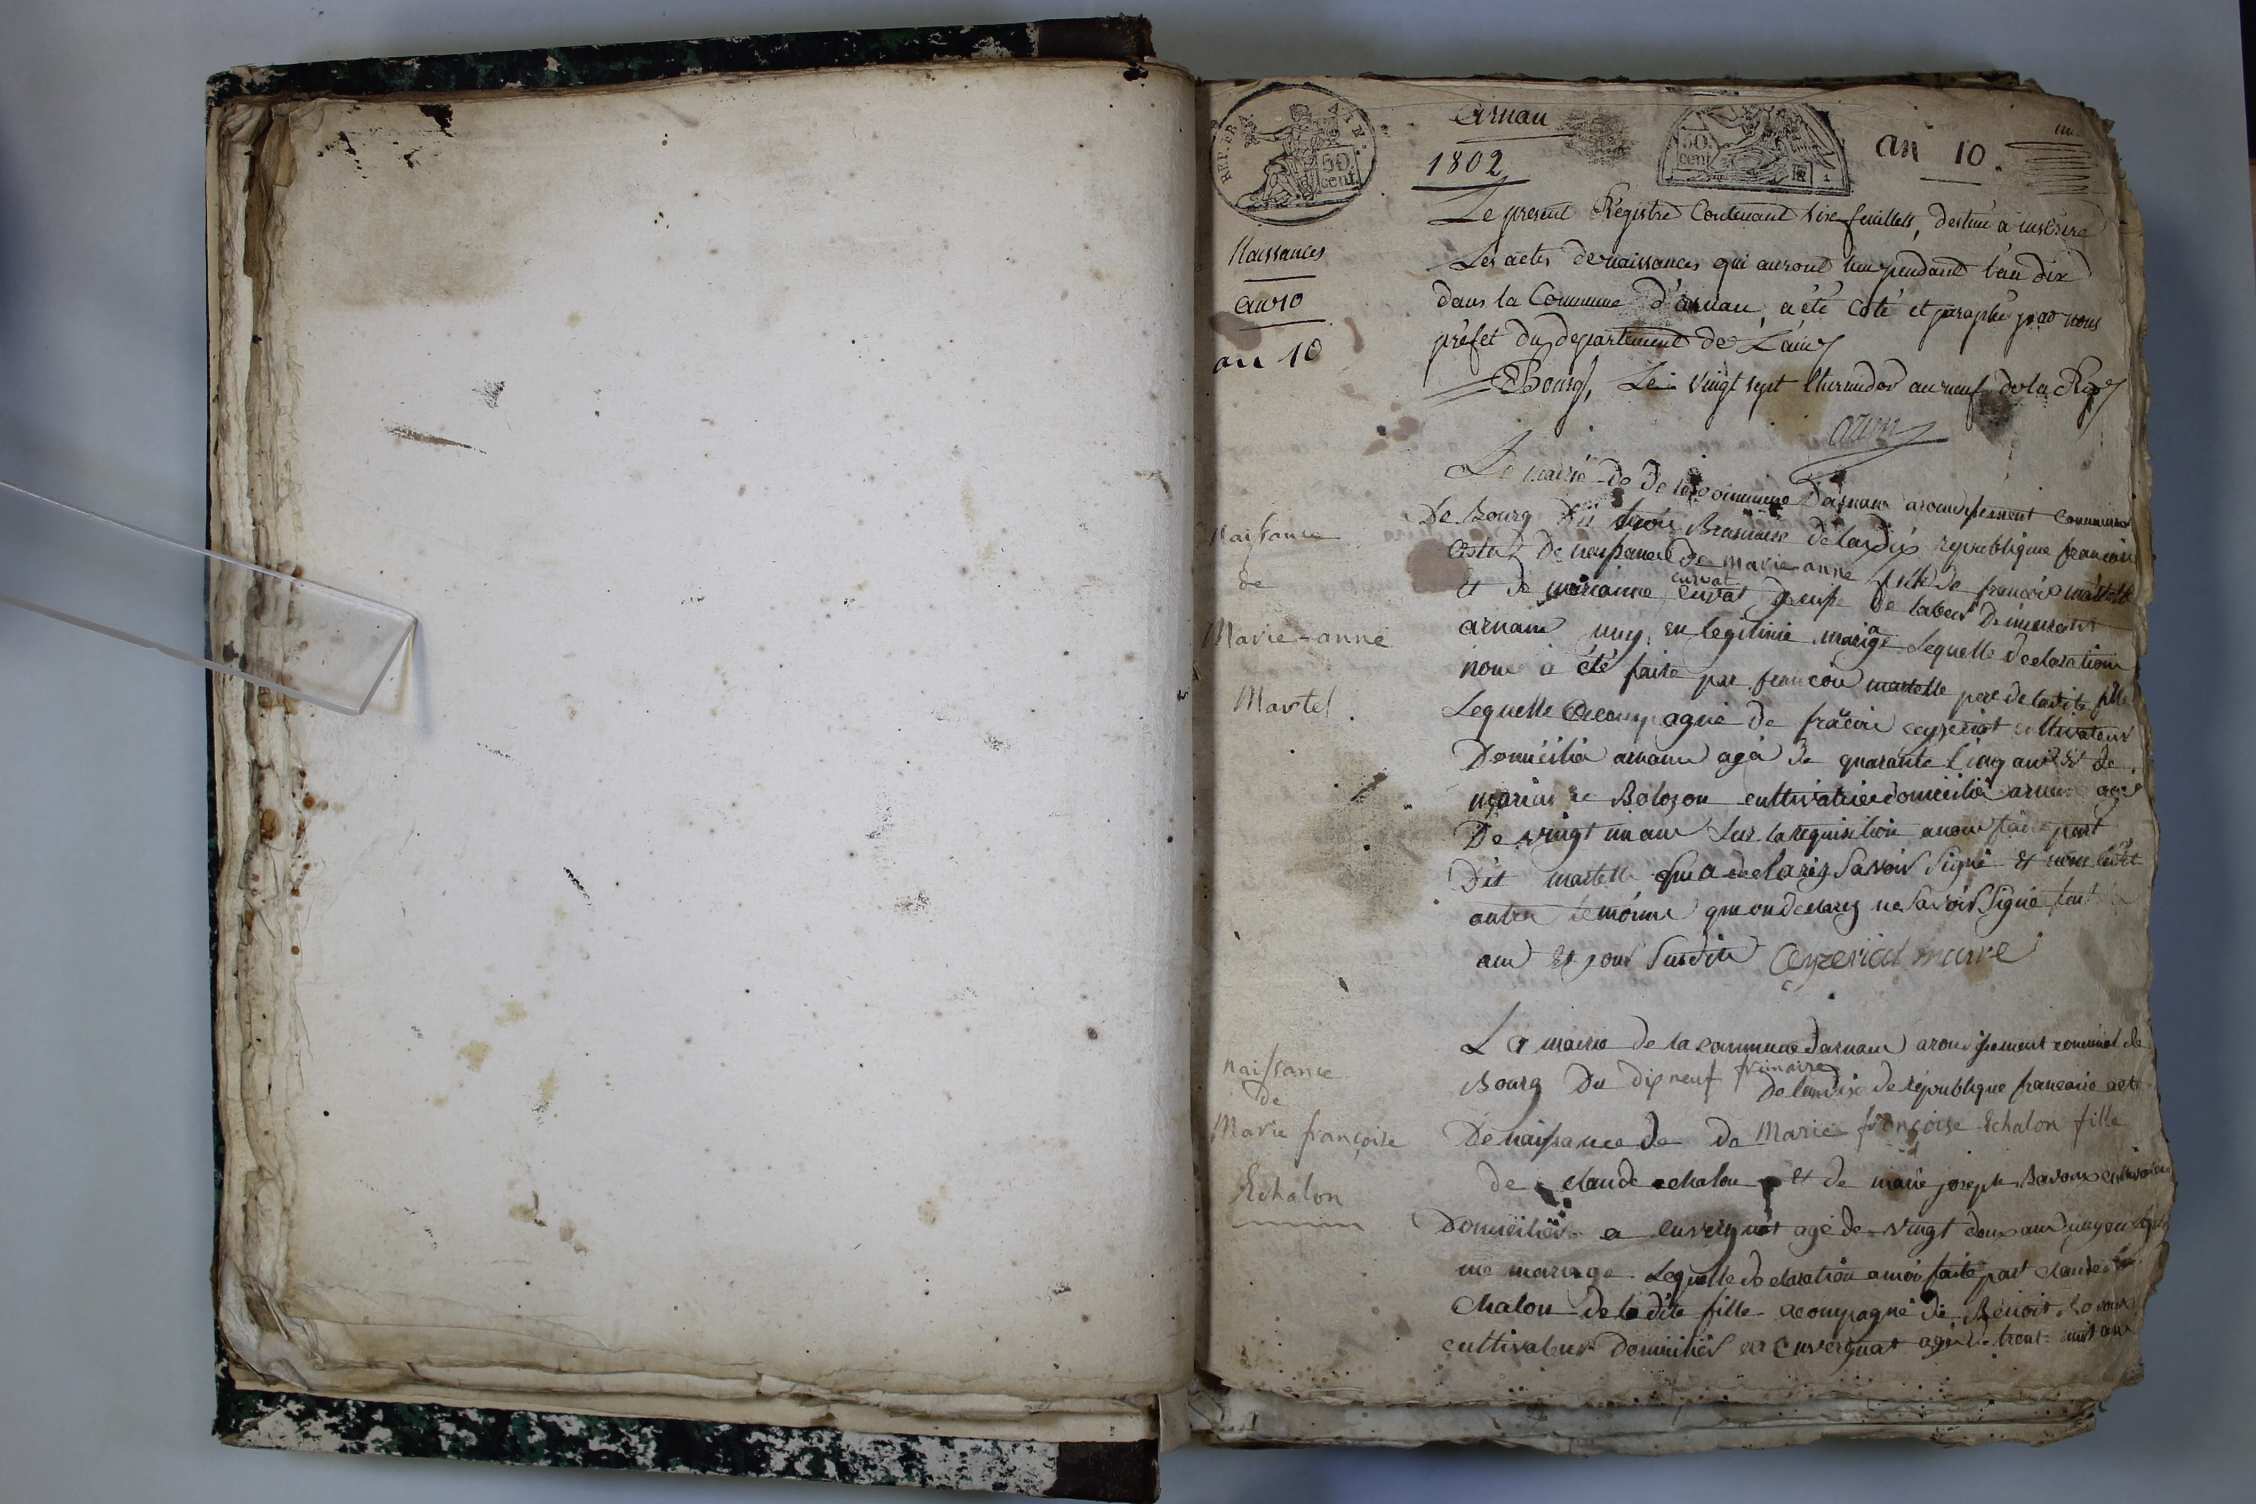 REP. FR
50 cent.
Arnan
1802
50. cent
an 10.
Naissances
an 10
an 10
Le present Régistre Contenant six feuillets, destiné à inscrire
Les actes de naissances qui auront lieu pendant l'an dix
dans la Commune d'arnan, a été Coté et paraphé par nous
préfet du département de L'ain
Bourg, Le vingt sept thermidor an neuf de la Rep
naissance
de
Marie-anne
Martel.
La mairie de de la commune Darnan arondissement communal
De Bourg Du trois Brumaire de landix republique francaise
acte De naissance de marie anne fille de francois martelle
curvat
& de marianne curvat
arnan en legitime mariage Lequelle declaration
nous a été faite par francoi martelle pere de ladite fille
Lequelle acompagné de francoi ceyzeriat cultivateur
Domicilié arnan agé de quarante cinq ans & de
marianne Bolozon cultivatrice domicilié arnan agé
De vingt un an Sur la requisition a nous faite par
Dit martelle que a declarez Savoir Signé & non les
autre temoins que on declarez ne Savoir Signé fait
an & jour Susdite Ceyzeriat maire
naissance
de
Marie françoise
Echalon
La mairie de la commune darnan arondissement communal de
frimaire
Bourg Du dixneuf De landix de république francaise acte
De naissance de de Marie françoise Echalon fille
de claude echalon & de marie joseph Bavoux cultivateur
Domiciliés a cuvergnat agé de vingt deux ans
me mariage. Lequelle declaration a moi faite par claude
Chalon de ladite fille acompagné de Benoit
cultivateur Domiciliés a Cuvergnat agé de trent huit an